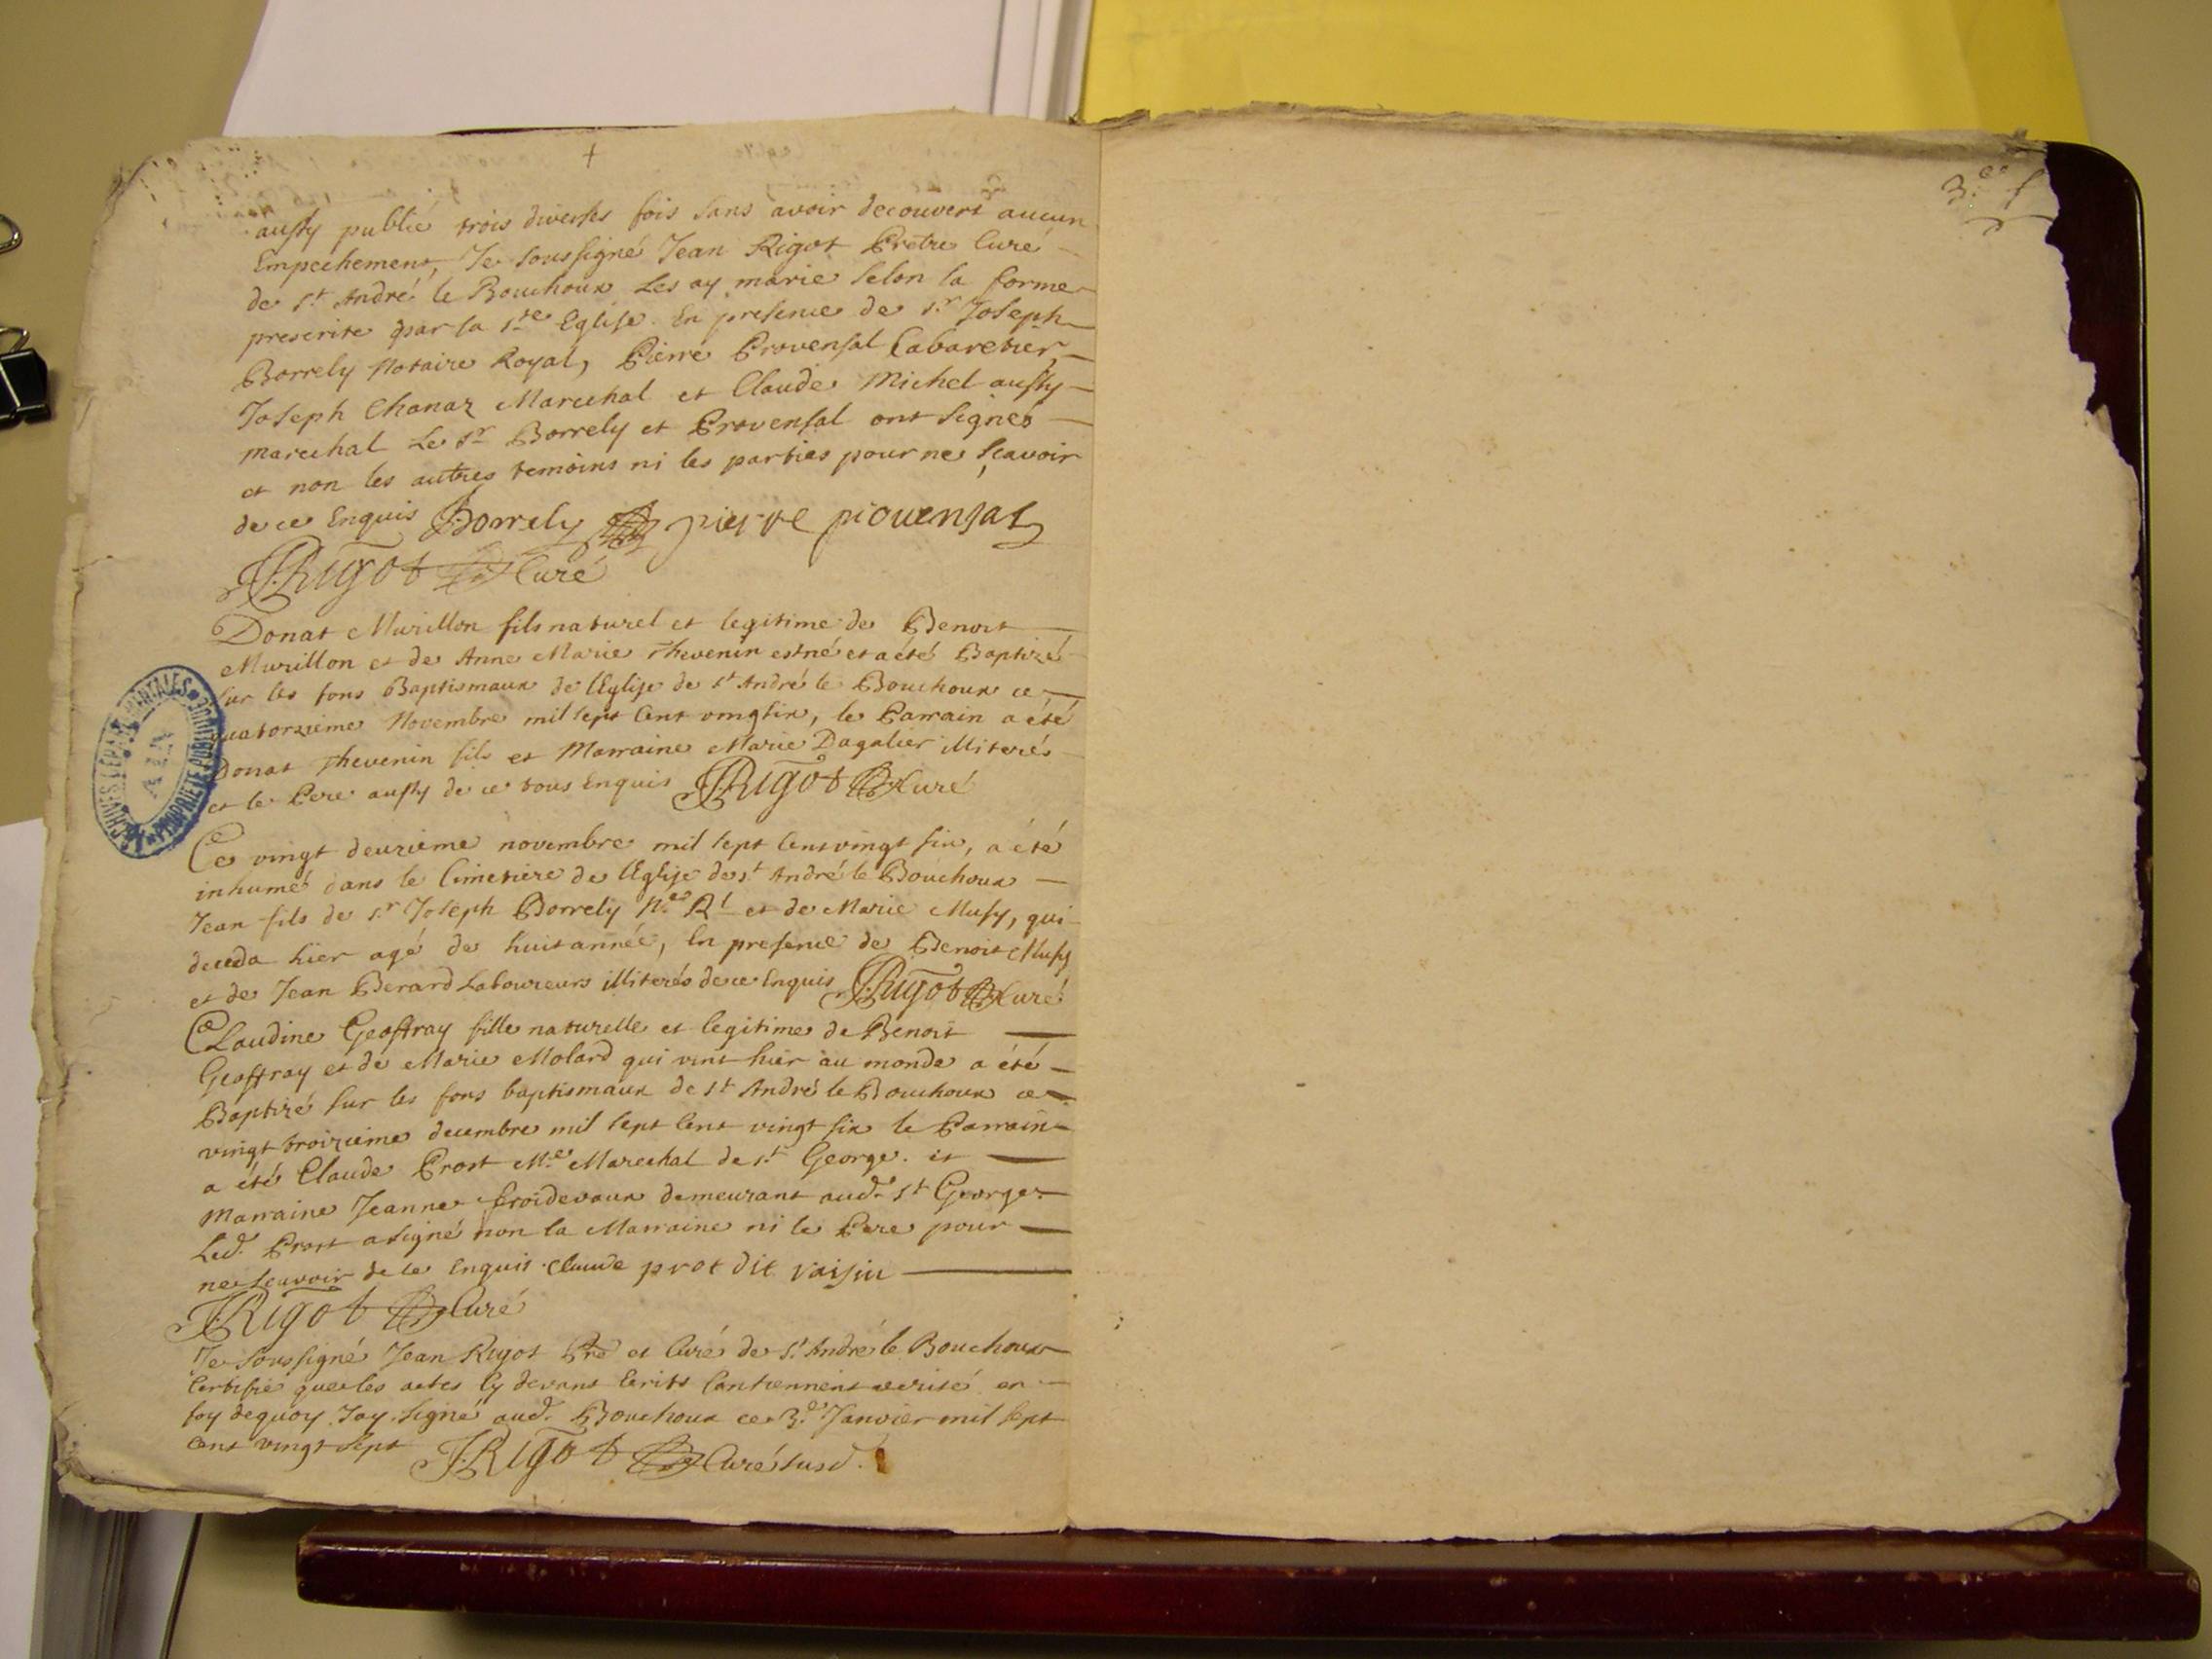 +
aussy publié trois diverses fois sans avoir decouvert aucun
Empechement, Je soussigné Jean Rigot Prêtre Curé
de St André le Bouchoux Les ay marié selon la forme
prescrite par la ste Eglise. En presence de sr Joseph
Borrely Notaire Royal, Pierre Provensal Cabaretier,
Joseph Chanaz Marechal et Claude Michel aussy
marechal Le sr Borrely et Provensal ont signés
et non les autres temoins ni les parties pour ne sçavoir
de ce Enquis Borrely pierre prouensal
JRigot Curé
Donat Murillon fils naturel et legitime de Benoit
Murillon et de Anne Marie Thevenin est né et a été Baptizé
sur les fons Baptismaux de l'Eglise de st André le Bouchoux ce
quatorzieme Novembre mil sept cent vingt six, le Parrain a été
Donat Thevenin fils et Marraine Marie Dagalier illiterés
et le Pere aussy de ce tous Enquis JRigot Curé
Ce vingt deuxieme novembre mil sept cent vingt six, a été
inhumé dans le Cimetiere de l'Eglise de st André le Bouchoux
Jean fils de sr Joseph Borrely Nre Rl et de Marie Musy, qui
deceda hier agé de huit année, En presence de Benoit Musy
et de Jean Berard Laboureurs illiterés de ce Enquis JRigot Curé
Claudine Geoffray fille naturelle et legitime de Benoit
Geoffray et de Marie Molard qui vint hier au monde a été
Baptizé sur les fons baptismaux de st André le Bouchoux ce
vingt troizieme decembre mil sept cent vingt six le Parrain
a été Claude Prost Me Marechal de st George. et
Marraine Jeanne froidevaux demeurant aud. st George
Led. Prost a signé non la Marraine ni le Pere pour
ne scavoir de ce Enquis Claude prot dit vaisin
JRigot Curé
Je soussigné Jean Rigot Pre et Curé de St André le Bouchoux
Certifie que les actes Cy devant Ecrits Contiennent verité en
foy de quoy Jay signé aud. Bouchoux ce 3e Janvier mil sept
cent vingt sept JRigot Curé susd.
3.e f
ARCHIVES DEPARTEMENTALES
AIN
PROPRIETE PUBLIQUE